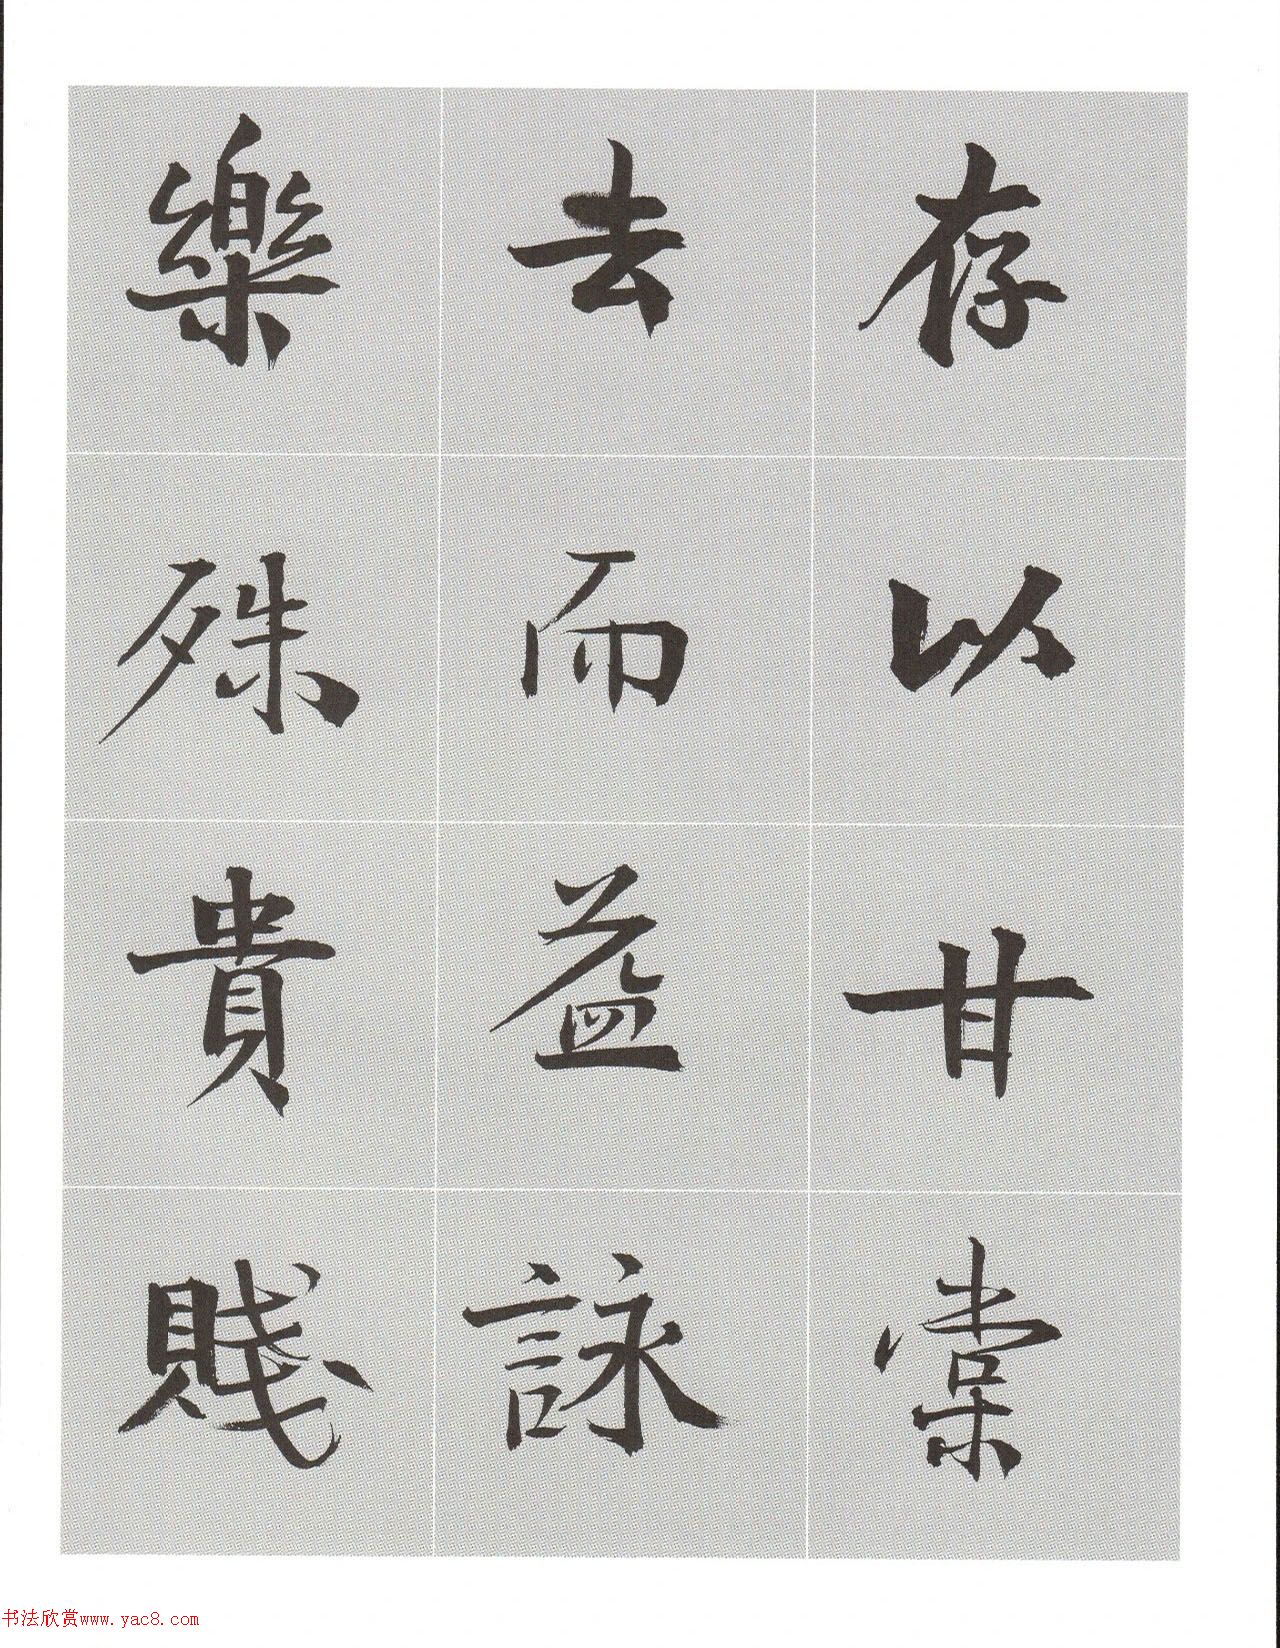 存以甘棠
去而益詠
樂殊貴賤
书法欣赏www.yac8.com